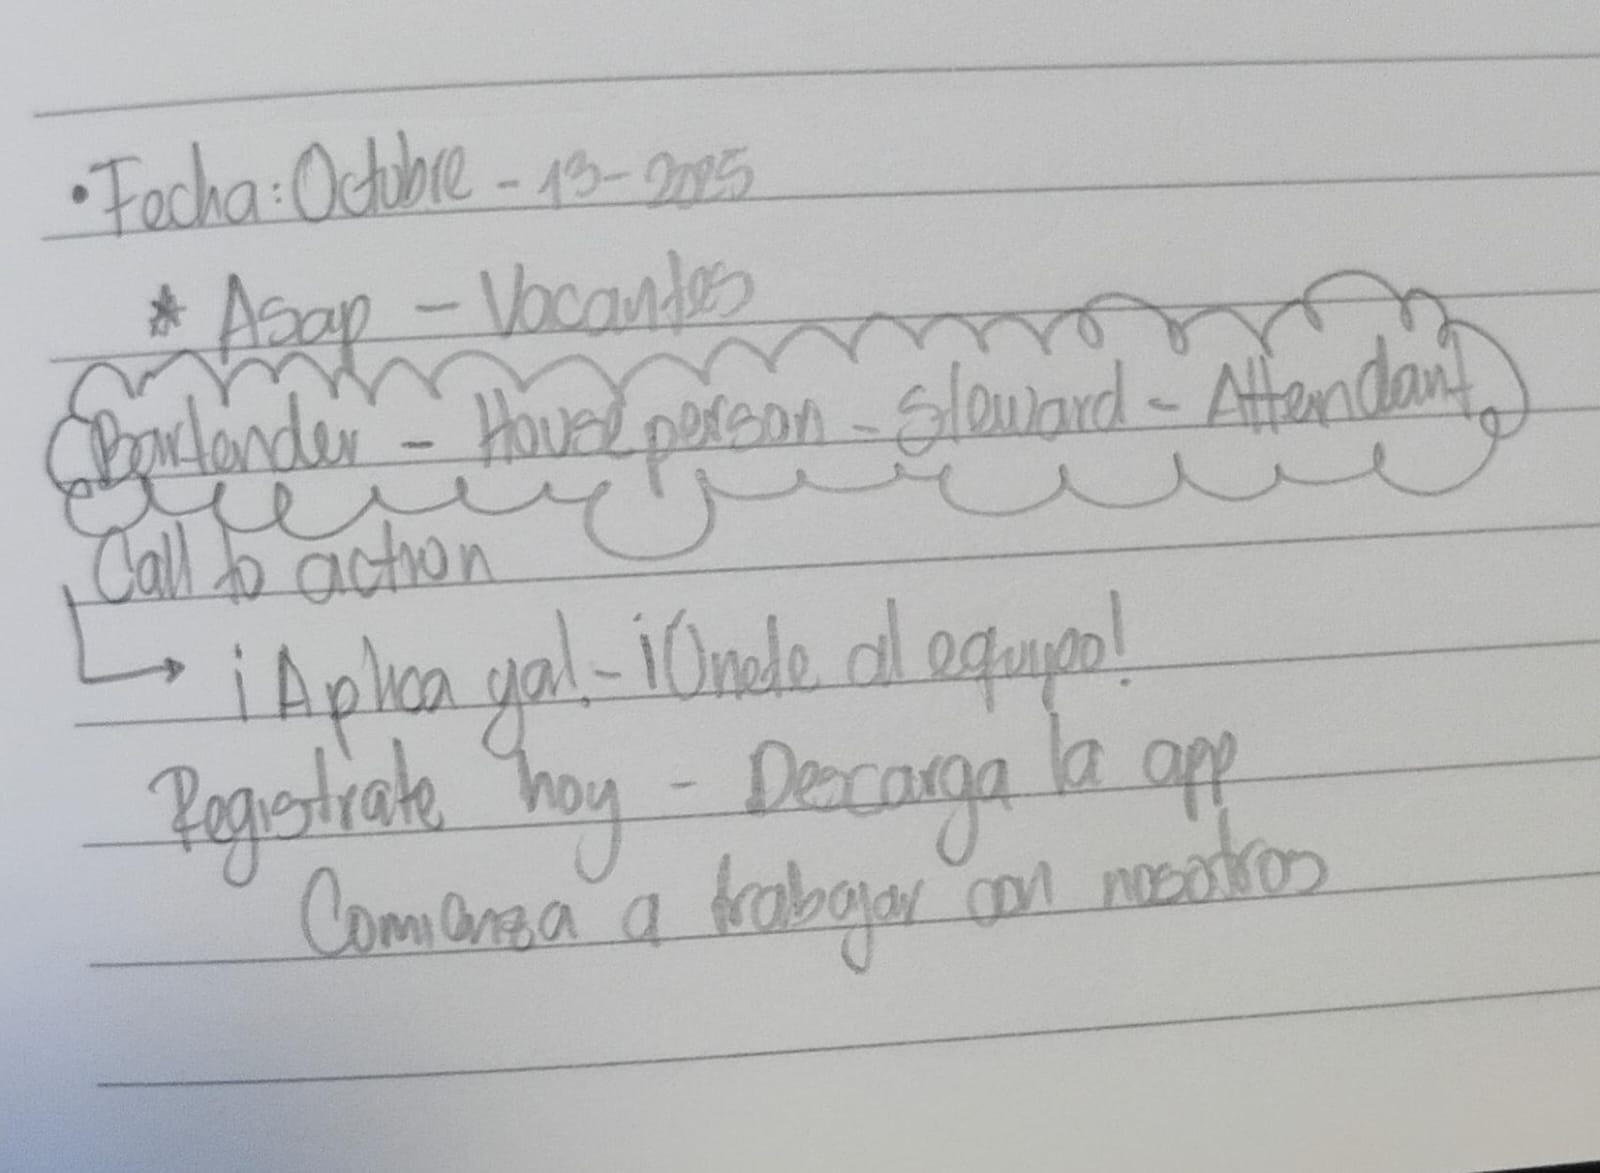 • Fecha: Octubre - 13 - 2025
* Asap - Vacantes
Bartender - Houseperson - Steward - Attendant
Call to action
→ ¡Aplica ya! - ¡Únete al equipo!
Registrate hoy - Descarga la app
Comienza a trabajar con nosotros